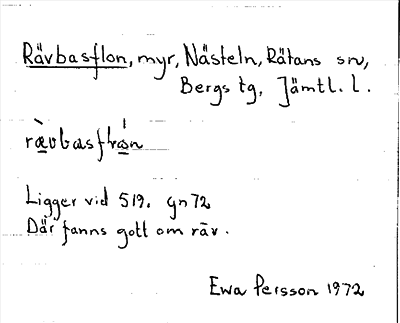 Rävbasflon, myr, Nästeln, Rätans sn,
Bergs tg, Jämtl. l.
rὰvbasfłón
Ligger vid 519. gn 72
Där fanns gott om räv.
Ewa Persson 1972